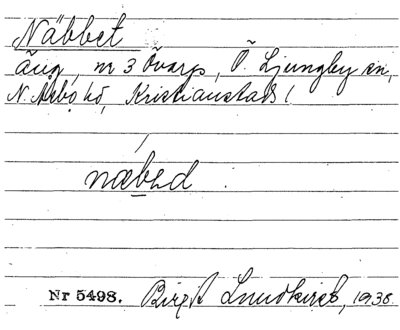 Näbbet
äng, nr 3 Övarp, Ö. Ljungby sn,
N. Åsbo hd, Kristianstads l
næbəd.
Nr 5498. Birgit 1938.